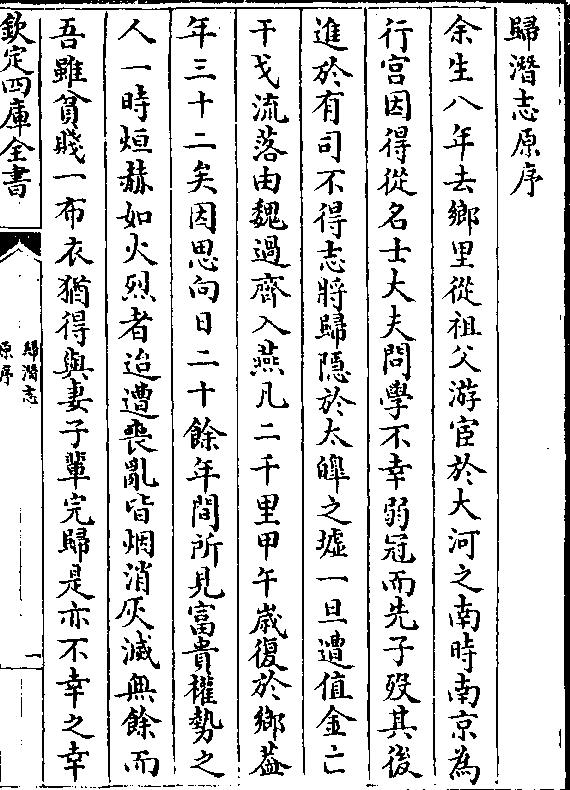 歸潛志原序
余生八年去鄉里從祖父游宦於大河之南時南京為
行宫因得從名士大夫問學不幸弱冠而先子殁其後
進於有司不得志將歸隐於太皥之墟一旦遭值金亡
干戈流落由魏過齊入燕凡二千里甲午歲復於鄉葢
年三十二矣因思向日二十餘年間所見富貴權勢之
人一時烜赫如火烈者迨遭喪亂皆烟消灰滅無餘而
吾雖貧賤一布衣猶得與妻子輩完歸是亦不幸之幸
欽定四庫全書
歸潛志
原序
一